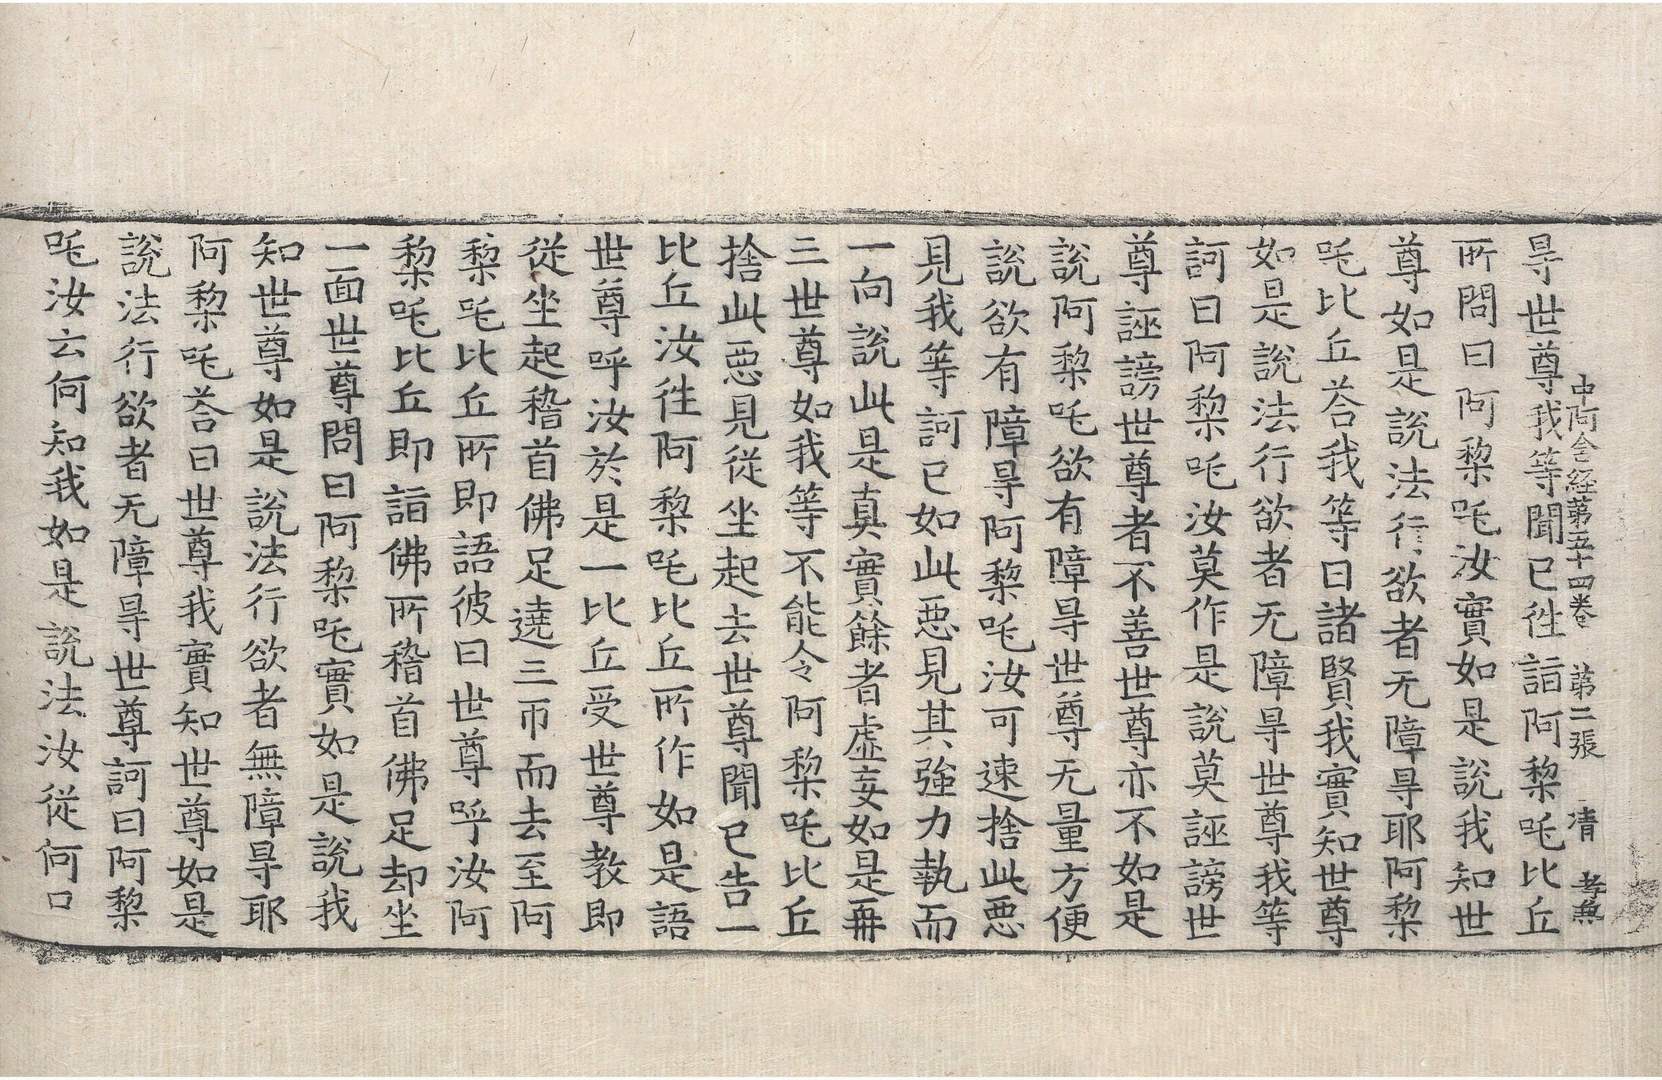 中阿含経苐五十四巻 苐二張
㝵世尊我等聞已徃詣阿棃吒比丘
所問曰阿棃吒汝實如是說我知世
尊如是說法行欲者无障㝵耶阿棃
吒比丘荅我等曰諸賢我實知世尊
如是說法行欲者无障㝵世尊我等
訶曰阿棃吒汝莫作是說莫誣謗世
尊誣謗世尊者不善世尊亦不如是
說阿棃吒欲有障㝵世尊无量方便
說欲有障㝵阿棃吒汝可速捨此惡
見我等訶已如此惡見其強力執而
一向說此是真實餘者虛妄如是再
三世尊如我等不能令阿棃吒比丘
捨此惡見從坐起去世尊聞已告一
比丘汝徃阿棃吒比丘所作如是語
世尊呼汝於是一比丘受世尊教即
從坐起稽首佛足遶三帀而去至阿
棃吒比丘所即語彼曰世尊呼汝阿
棃吒比丘即詣佛所稽首佛足却坐
一面世尊問曰阿棃吒實如是說我
知世尊如是說法行欲者無障㝵耶
阿棃吒荅曰世尊我實知世尊如是
說法行欲者无障㝵世尊訶曰阿棃
吒汝云何知我如是說法汝從何口